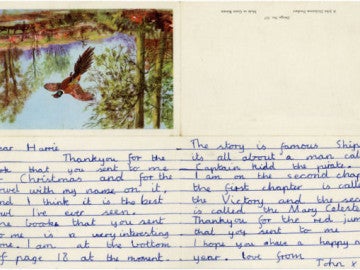 A John Dickinson Product
Design No. 327
Made in Great Britain
ear Harrie
Thankyou for the
ok that you sent to me
Christmas and for the
owel with my name on it,
nd I think it is the best
owl I've ever seen.
he books that you sent
o me is a very interesting
ne. I am at the bottom
f page 18 at the moment.
The story is famous Ship
its all about a man cal
Captain Kidd the pirate.
I am on the second chap
the first chapter is calle
the Victory and the sec
is called the Mary Celest
Thankyou for the red jum
that you sent to me
I hope you have a happy n
year. love from
John x